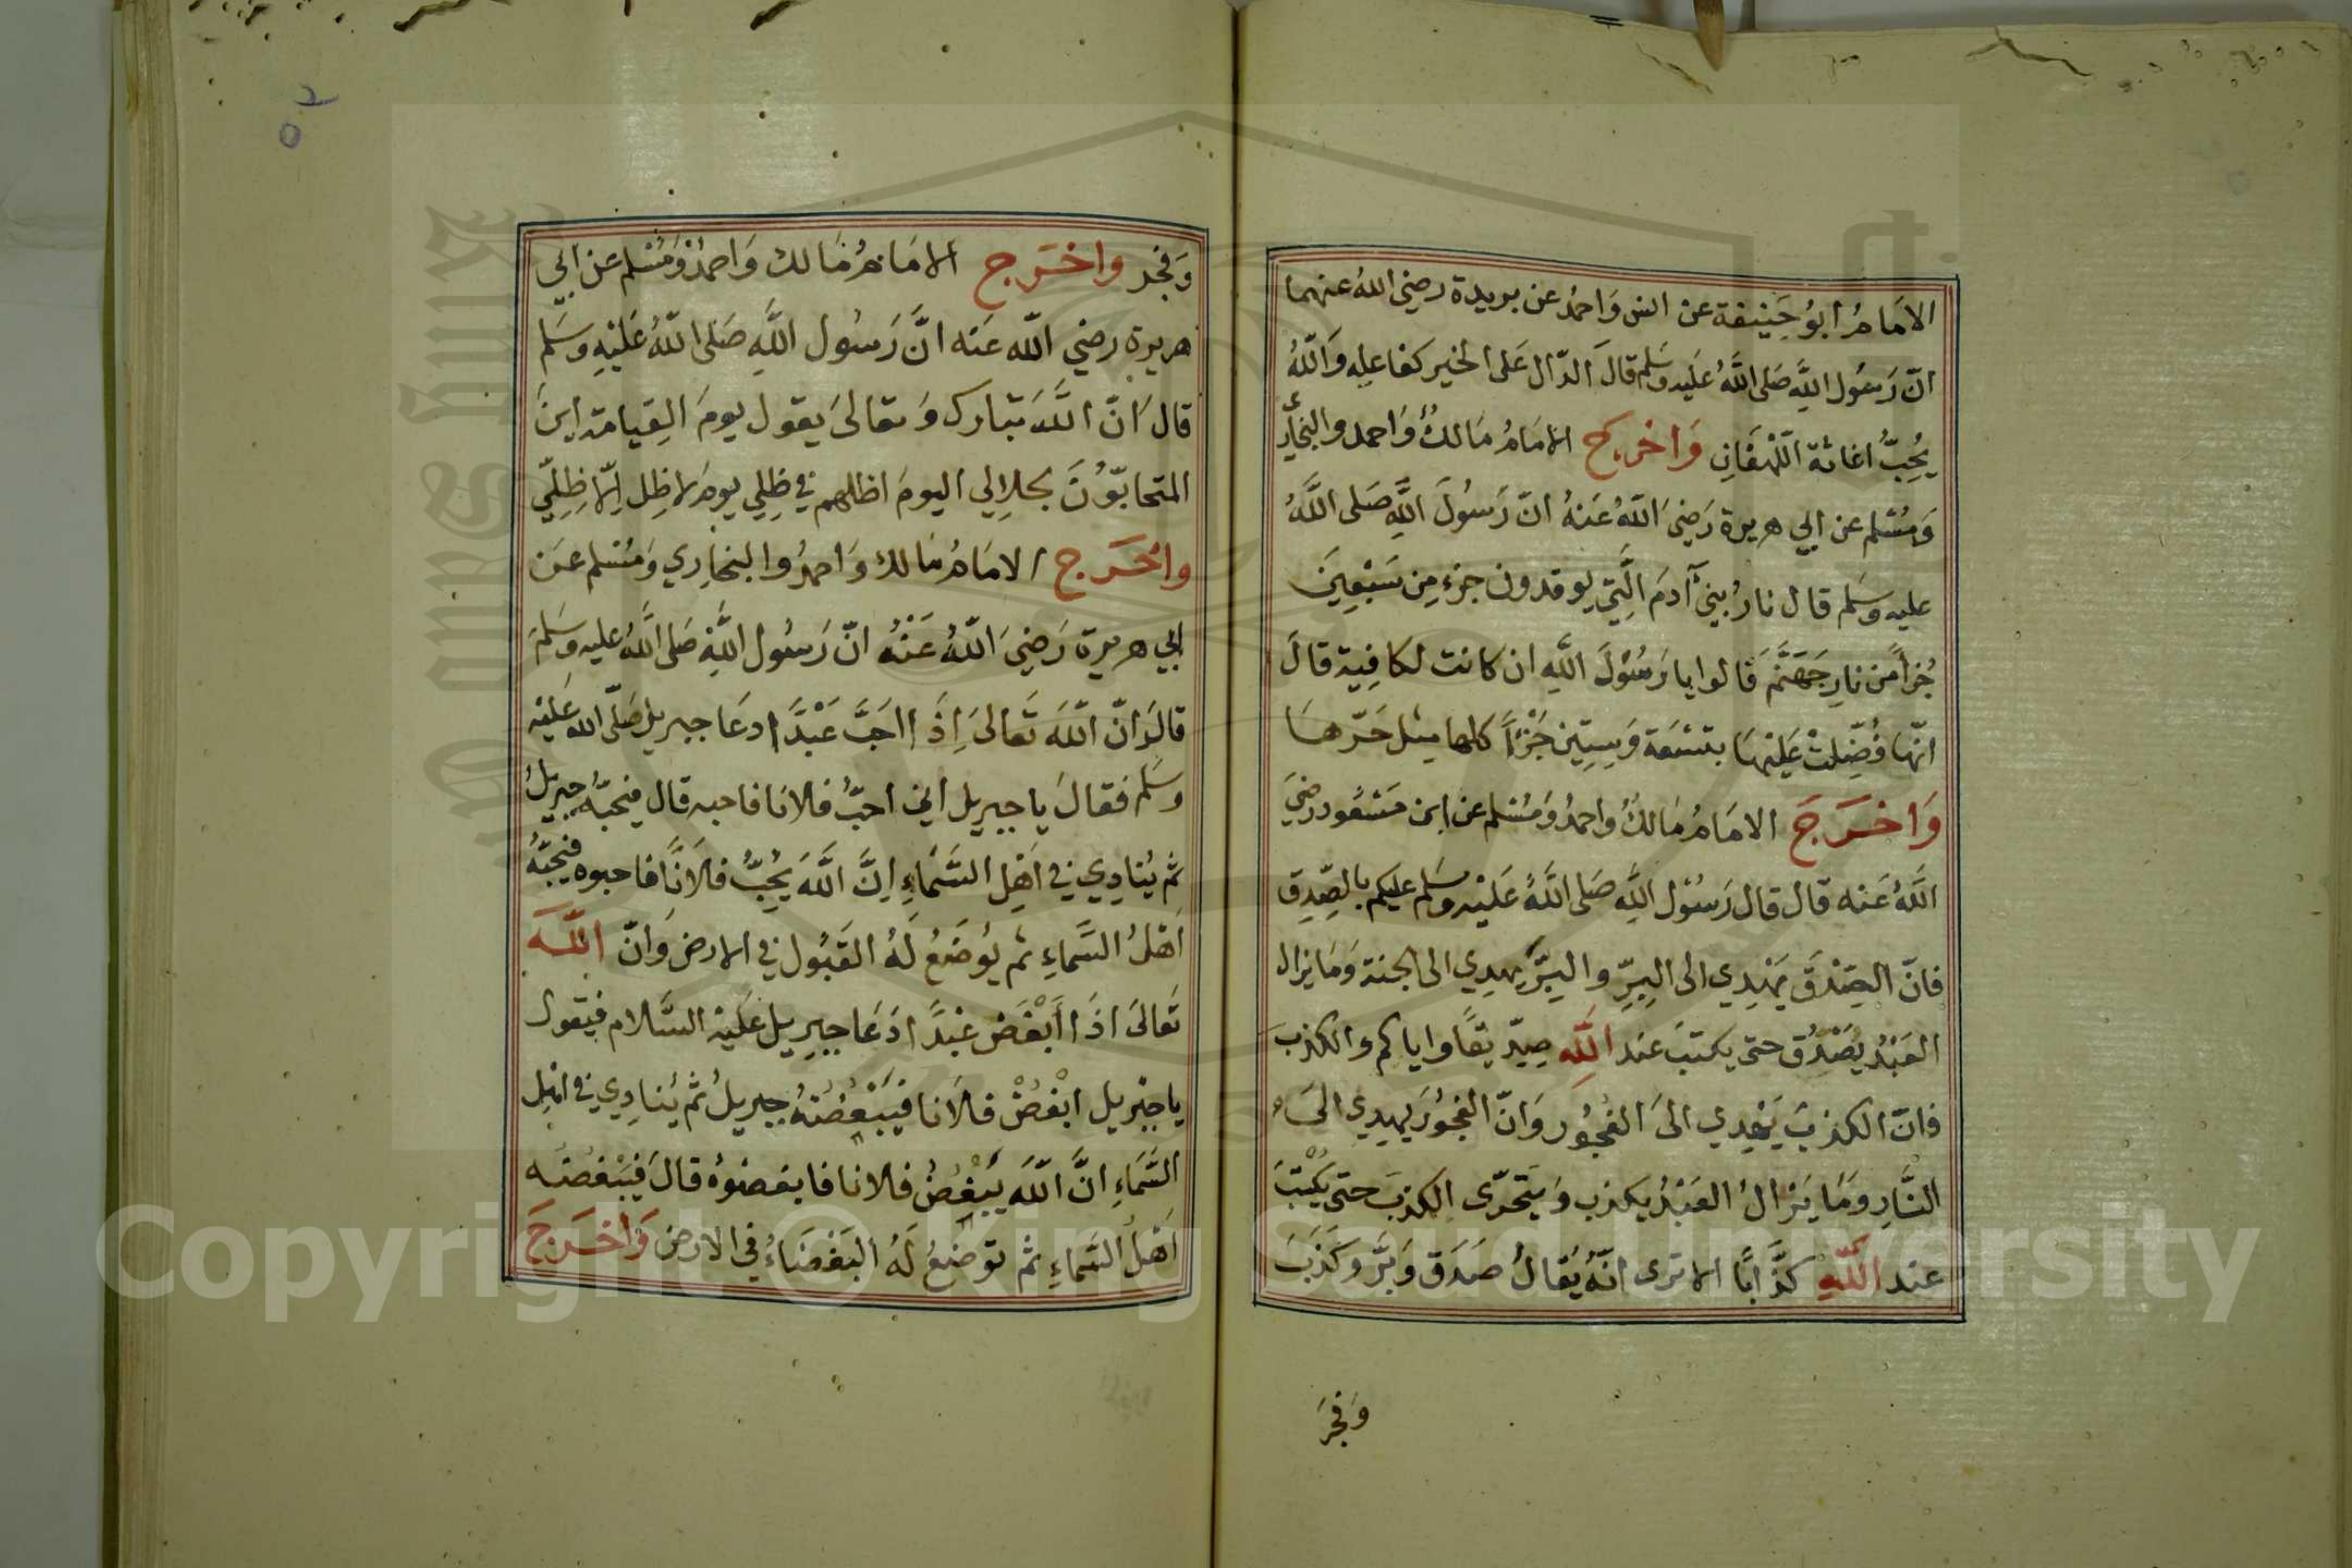 الامَامُ ابُو حَنِيفة عن انس وَاحمدُ عن بريدة رضي اللهُ عنهما
انّ رَسُول اللهِ صَلى اللهُ عَليه وسَلم قالَ الدّال عَلى الخير كفاعله وَاللهُ
يُحِبُّ اغاثة اللّهْفَانِ وَاخرج الامَامُ مَالكٌ وَاحمد والبخَاري
وَمُسْلم عن ابي هريرة رَضيَ اللهُ عَنهُ انّ رَسُولَ اللهِ صَلى اللهُ
عليه وسَلم قال نارُ بنيْ آدمَ الَّتِيْ يوقدون جزء مِن سَبْعِينَ
جُزأً مّن نارِ جَهَنَّمَ قَالوا يا رَسُوْلَ اللهِ ان كانت لكافِية قالَ
انّها فُضِّلتْ عَليْهَا بتسْعَة وَسِتِّين جُزْأً كلها مِثل حَرّهَا
وَاخرَجَ الامَامُ مَالكٌ واحمدُ وَمُسْلم عن ابن مَسْعُود رضيَ
اللهُ عَنه قال قال رَسُوْل اللهِ صَلى اللهُ عَليْه وسَلم عليكم بالصِّدِق
فانّ الصِّدْقَ يَهْدِي الى البِرِّ والبِرَّ يهدِي الى الجنة وَمَا يزال
العَبْدُ يَصْدُق حتى يكتبَ عند اللهِ صِدّيقًا واياكم والكذبَ
فانّ الكذبَ يَهْدِي الىَ الفُجُور وَانّ الفجوْرَ يهدِي الىَ
النَّارِ وَمَا يَزالُ العَبْدُ يكذب وَيَتَحرّى الكذبَ حتى يُكْتَبَ
عند اللهِ كذَّابًا الا ترى انّهُ يُقالُ صَدَق وَبَرَّ وَكَذَبَ
وَفَجَرَ
وَفجر واخرَج الامَامُ مَالك وَاحمدُ وَمُسْلم عن ابي
هريرة رضي الله عَنه انَّ رَسُول اللهِ صَلى اللهُ عَليْهِ وسَلم
قالَ انّ اللهَ تبَارك وَتعالىَ يقول يومَ القِيامة اينَ
المتحابّوْنَ بجلالِي اليومَ اظلهم في ظِلي يومَ لا ظِل اِلّا ظِلِّي
واخَرَج الامَامُ مَالك وَاحمدُ والبخاري وَمُسْلم عَن
ابي هريرة رَضيَ اللهُ عَنْهُ انّ رَسُول اللهِ صَلى اللهُ عليه وسَلمَ
قالَ انّ اللهَ تَعَالىَ اِذَا احَبَّ عَبْدًا دعَا جبريل صَلّى الله عَليْه
وسَلم فقالَ يا جبريل اني احبُّ فلانا فاحبه قال فيحبّهُ جبريلُ
ثم يُنادِي في اهْلِ السَّمَاءِ اِنَّ اللهَ يُحِبُّ فلَانًا فاحبوه فيحبّهُ
اَهْلُ السَّماءِ ثم يُوضَعُ لَهُ القَبُول في الارض وَانّ اللهَ
تَعَالىَ اذَا أَبْغَض عَبْدًا دَعَا جبريل عَليْه السَّلام فيَقول
يا جبْريل ابْغضْ فلَانا فيَبْغُضُهُ جبريلُ ثم يُنادِي في اهْلِ
السَّمَاءِ انَّ اللهَ يَبْغضُ فلانا فابغضوْهُ قالَ فيَبْغضُه
اَهْلُ السَّماءِ ثم توضَعُ لَهُ البَغْضَاءُ في الارض وَاخرَجَ
Copyright © King Saud University